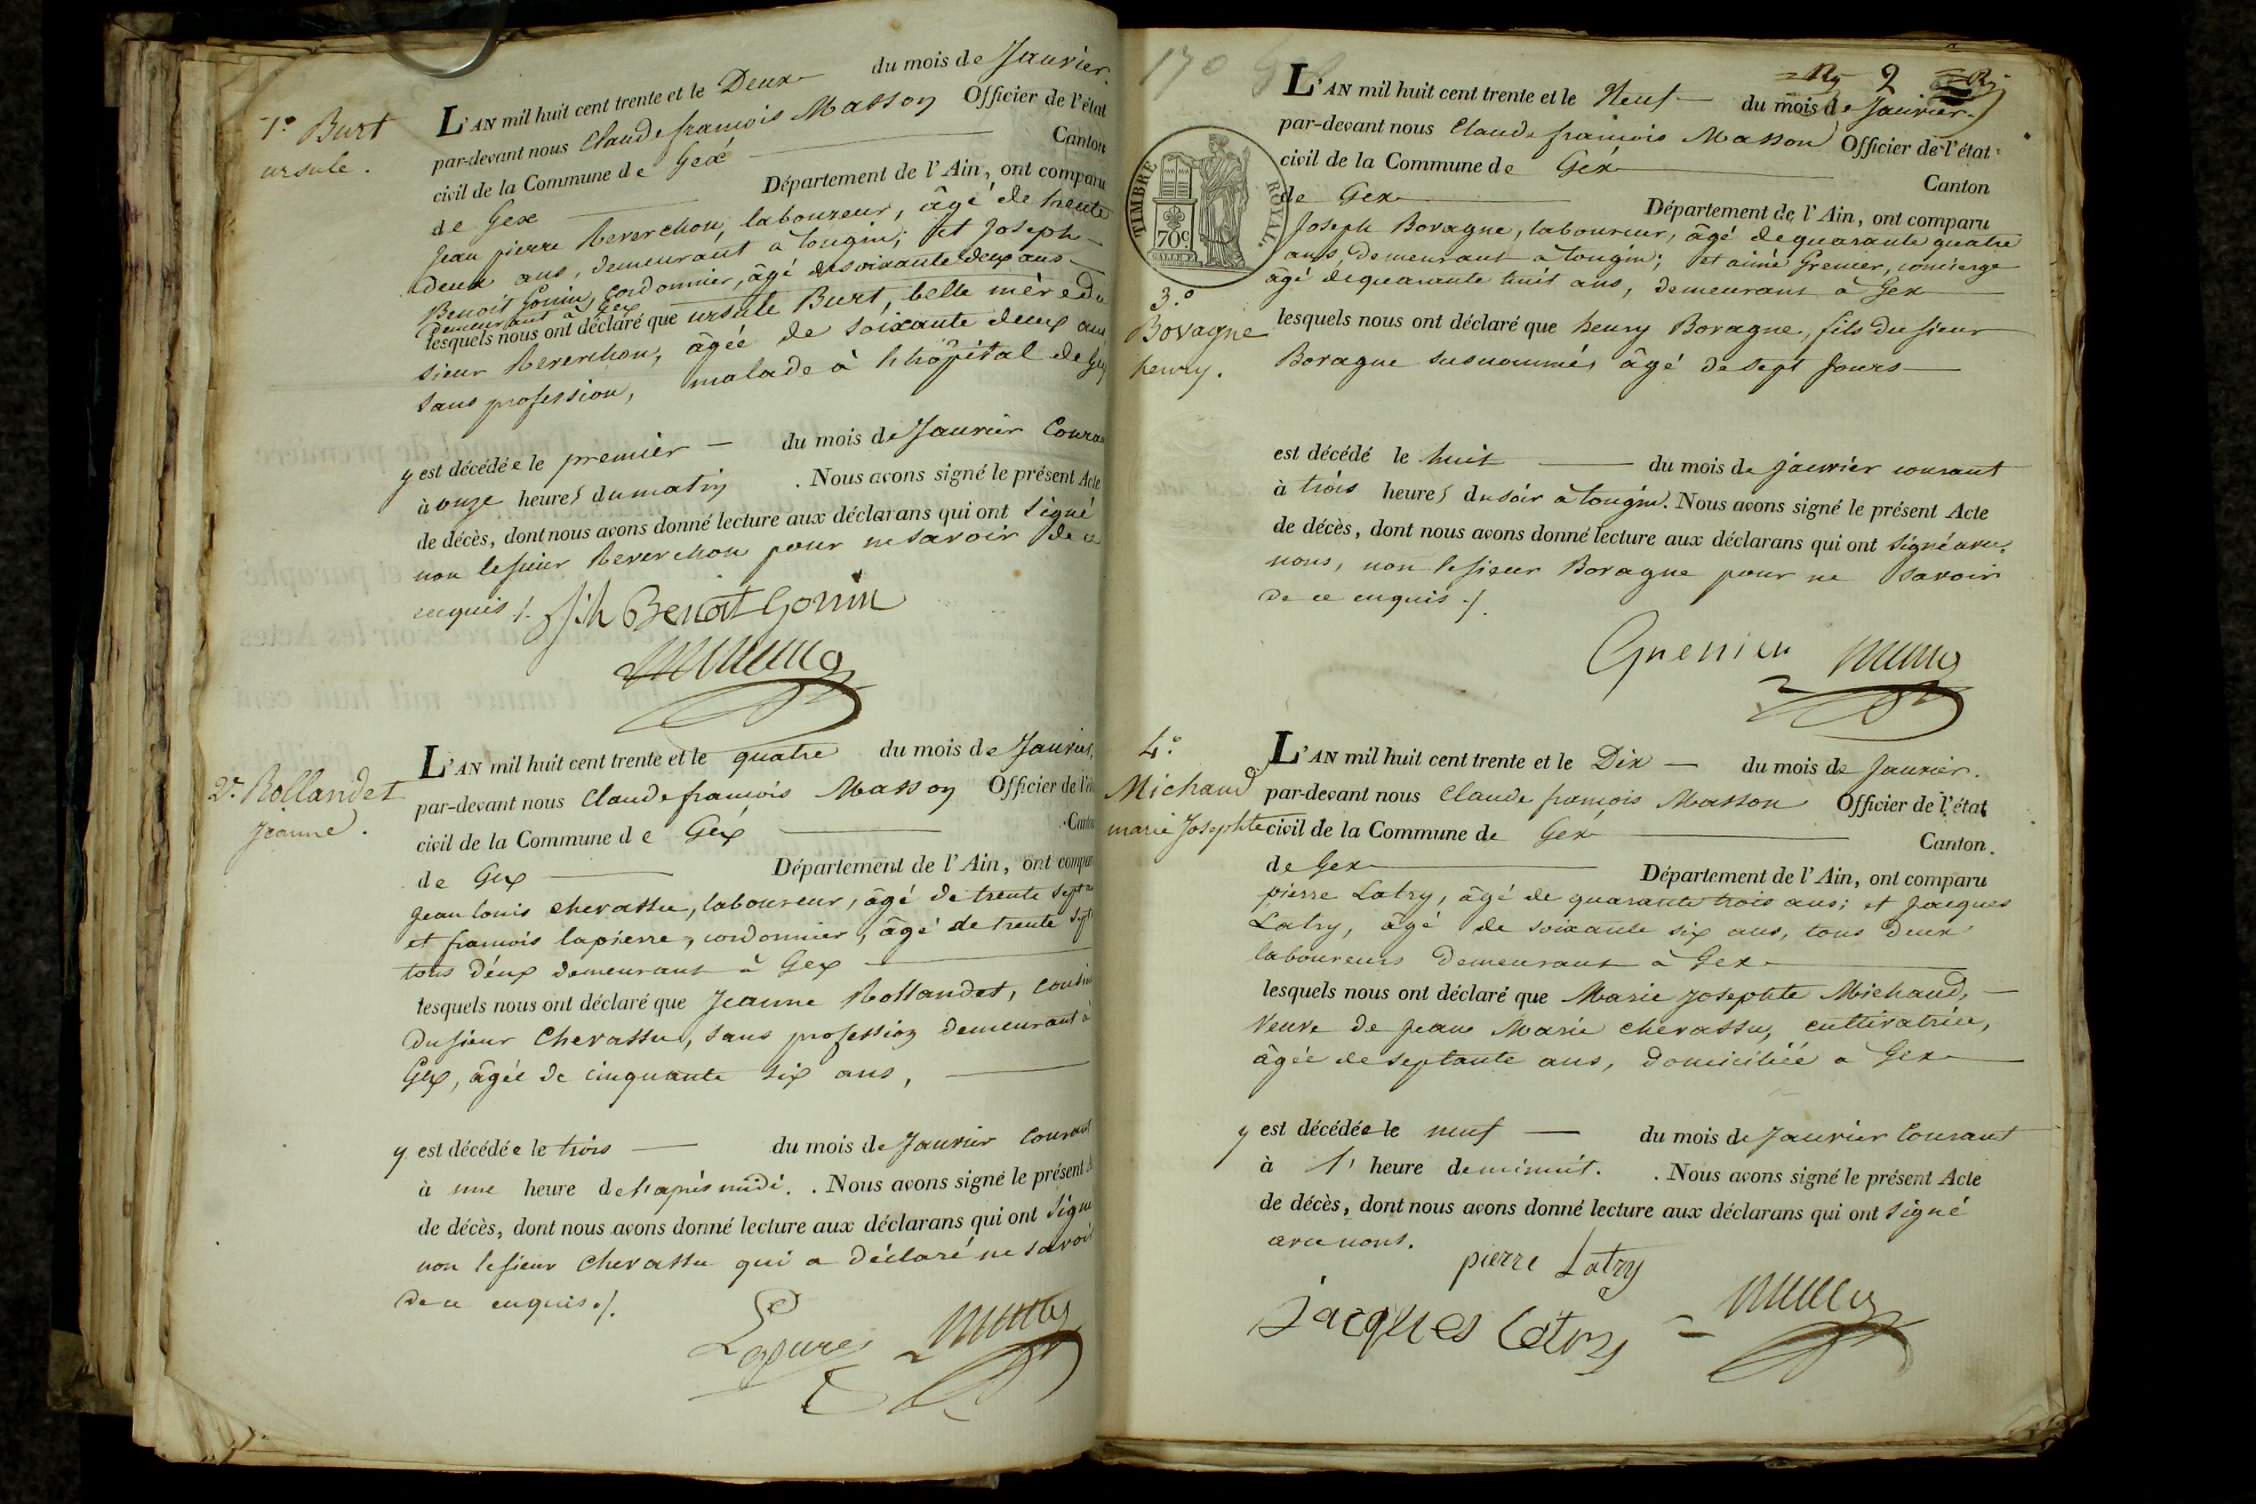 1.° Burt
ursule.
L'AN mil huit cent trente et le Deux du mois de Janvier.
par-devant nous Claude françois Masson Officier de l'état
civil de la Commune de Gex Canton
de Gex Département de l'Ain, ont comparu
Jean pierre Reverchon, laboureur, âgé de trente
deux ans, demeurant à tougin; et Joseph
Benoit Gonin, cordonnier, âgé de soixante deux ans
demeurant à Gex
lesquels nous ont déclaré que ursule Burt, belle mère du
sieur Reverchon, âgée de soixante deux ans
sans profession, malade à l'hôpital de Gex
y est décédée le premier du mois de Janvier Coura
à onze heures du matin . Nous avons signé le présent Acte
de décès, dont nous avons donné lecture aux déclarans qui ont signé
non le sieur Reverchon pour ne savoir de ce
enquis ./. Jh Benoit Gonin
2.° Rollandet
Jeanne.
L'AN mil huit cent trente et le quatre du mois de Janvier.
par-devant nous Claude françois Masson Officier de l'é
civil de la Commune de Gex Canton
de Gex Département de l'Ain, ont compar
Jean louis chevassu, laboureur, âgé de trente sept
et francois lapierre, cordonnier, âgé de trente sept
tous deux demeurant à Gex
lesquels nous ont déclaré que Jeanne Rollandet, cousine
du sieur Chevassu, sans profession demeurant à
Gex, âgée de cinquante six ans,
y est décédée le trois du mois de Janvier Courant
à une heure de l'après midi. . Nous avons signé le présent A
de décès, dont nous avons donné lecture aux déclarans qui ont signé
non le sieur Chevassu qui a déclaré ne savoir
de ce enquis ./.
170
2
TIMBRE ROYAL.
70c
3.°
Bovagne
henry.
L'AN mil huit cent trente et le Neuf du mois de Janvier.
par-devant nous Claude françois Masson Officier de l'état
civil de la Commune de Gex Canton
de Gex Département de l'Ain, ont comparu
Joseph Bovagne, laboureur, âgé de quarante quatre
ans, demeurant à tougin; et aimé Grenier, concierge
âgé de quarante huit ans, demeurant à Gex
lesquels nous ont déclaré que henry Bovagne, fils du sieur
Bovagne susnommé, âgé de sept Jours
est décédé le huit du mois de janvier courant
à trois heures du soir à tougin. Nous avons signé le présent Acte
de décès, dont nous avons donné lecture aux déclarans qui ont signé avec
nous, non le sieur Bovagne pour ne savoir
de ce enquis ./.
Grenier
4.°
Michaud
marie Josephte
L'AN mil huit cent trente et le Dix du mois de Janvier.
par-devant nous Claude françois Masson Officier de l'état
civil de la Commune de Gex Canton.
de Gex Département de l'Ain, ont comparu
pierre Latry, âgé de quarante trois ans; et Jacques
Latry, âgé de soixante six ans, tous deux
laboureurs demeurant à Gex
lesquels nous ont déclaré que Marie Josephte Michaud,
Veuve de Jean Marie chevassu, cultivatrice,
âgée de septante ans, domiciliée a Gex
y est décédée le neuf du mois de Janvier Courant
à 1' heure de minuit. . Nous avons signé le présent Acte
de décès, dont nous avons donné lecture aux déclarans qui ont signé
avec nous.
pierre Latry
jacques Latry